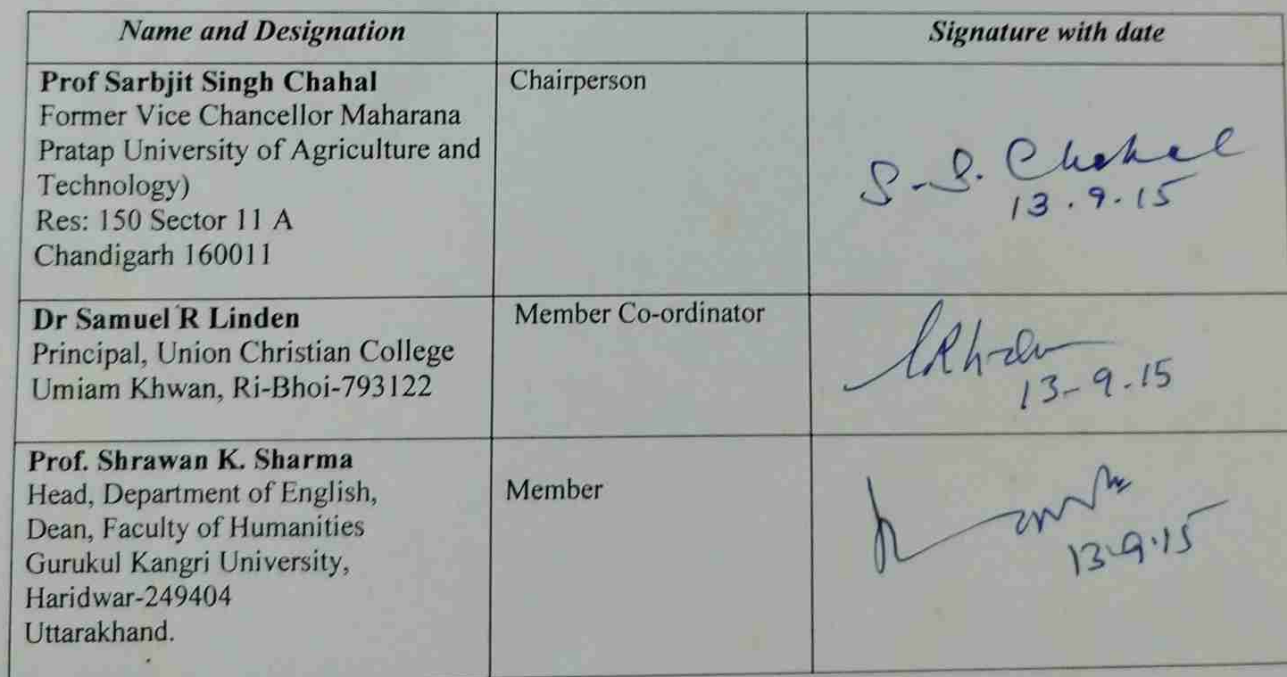 Name and Designation
Signature with date
Prof Sarbjit Singh Chahal
Former Vice Chancellor Maharana
Pratap University of Agriculture and
Technology)
Res: 150 Sector 11 A
Chandigarh 160011
Chairperson
S.S. Chahal
13.9.15
Dr Samuel R Linden
Principal, Union Christian College
Umiam Khwan, Ri-Bhoi-793122
Member Co-ordinator
13-9-15
Prof. Shrawan K. Sharma
Head, Department of English,
Dean, Faculty of Humanities
Gurukul Kangri University,
Haridwar-249404
Uttarakhand.
Member
13.9.15